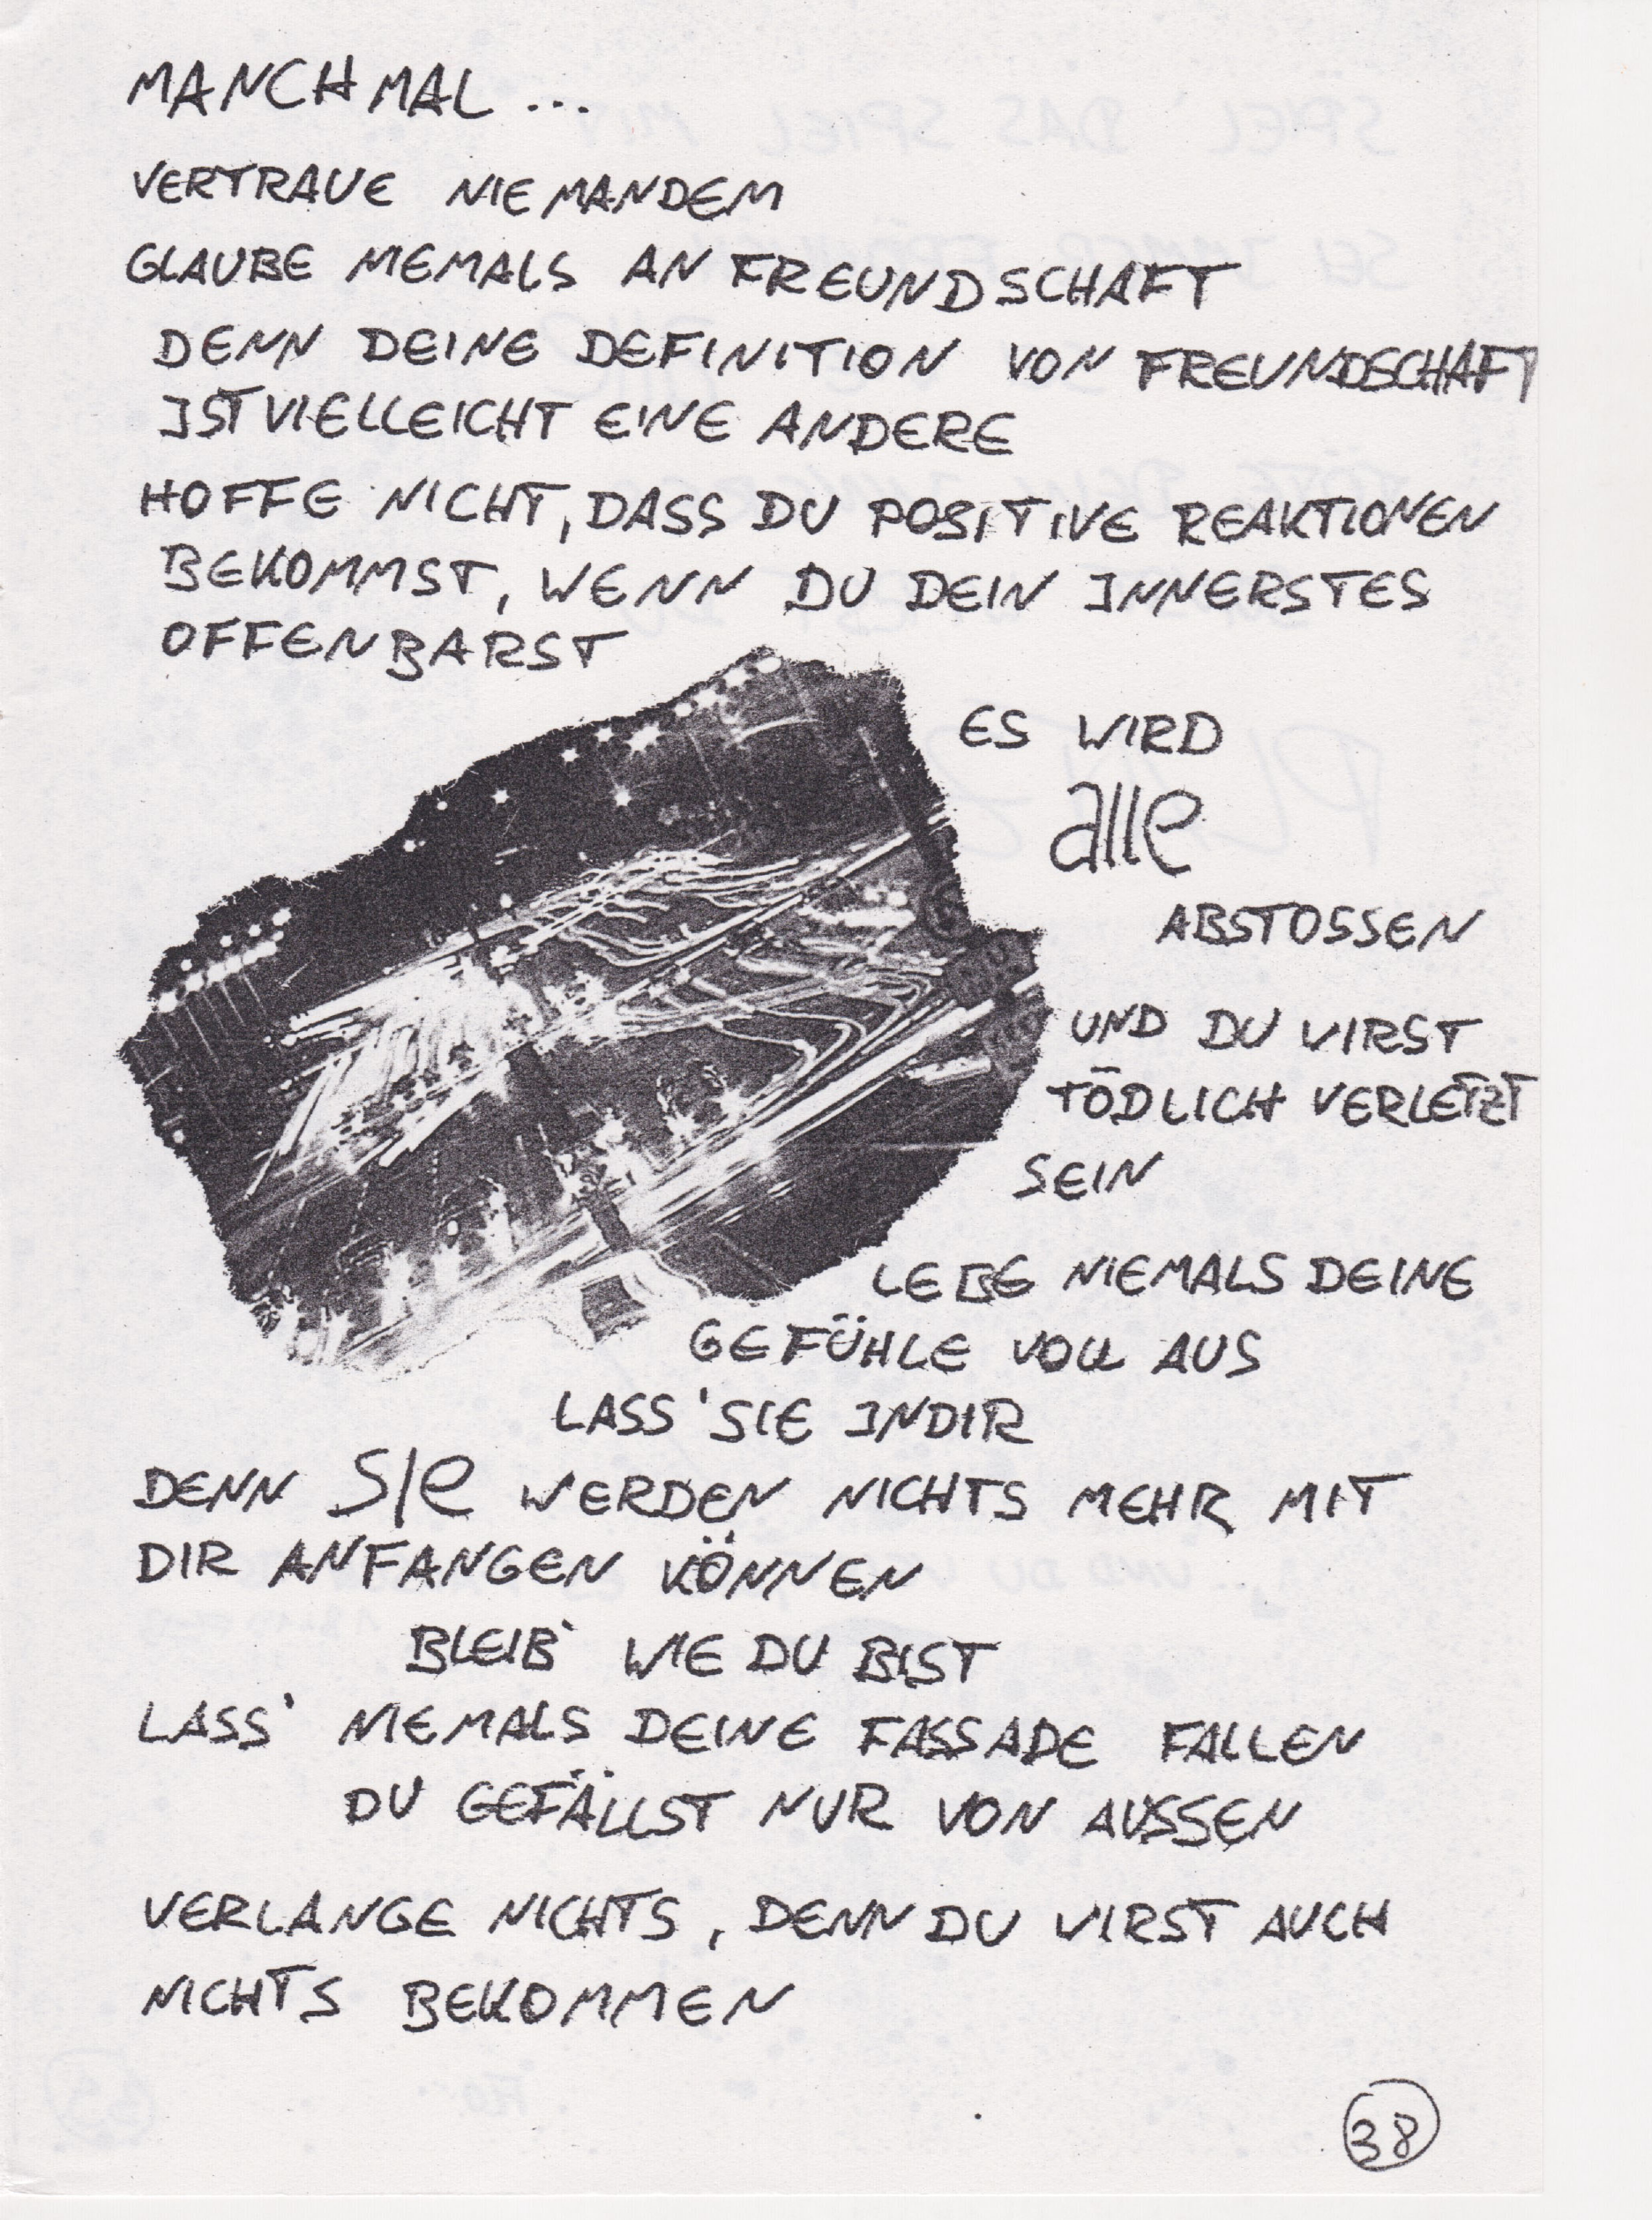 MANCHMAL ...
VERTRAUE NIEMANDEM
GLAUBE NIEMALS AN FREUNDSCHAFT
DENN DEINE DEFINITION VON FREUNDSCHAFT
IST VIELLEICHT EINE ANDERE
HOFFE NICHT, DASS DU POSITIVE REAKTIONEN
BEKOMMST, WENN DU DEIN INNERSTES
OFFENBARST
ES WIRD
alle
ABSTOSSEN
UND DU WIRST
TÖDLICH VERLETZT
SEIN
LEBE NIEMALS DEINE
GEFÜHLE VOLL AUS
LASS' SIE IN DIR
DENN SIe WERDEN NICHTS MEHR MIT
DIR ANFANGEN KÖNNEN
BLEIB' WIE DU BIST
LASS' NIEMALS DEINE FASSADE FALLEN
DU GEFÄLLST NUR VON AUSSEN
VERLANGE NICHTS, DENN DU WIRST AUCH
NICHTS BEKOMMEN
38